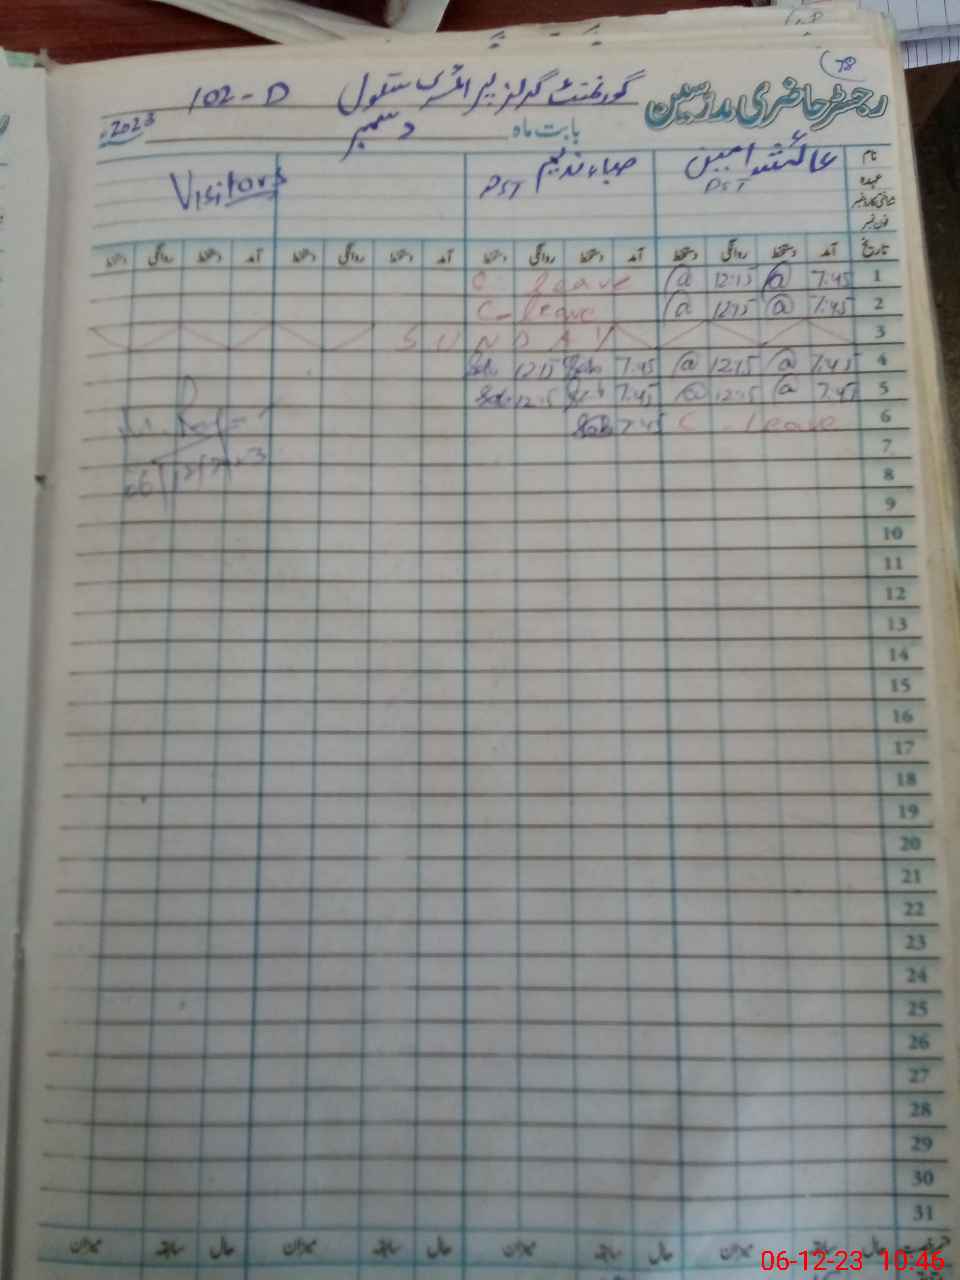 78
رجسٹر حاضری مدرسین گورنمنٹ گرلز پرائمری سکول 102-D
بابت ماہ دسمبر 2023ء
نام عائشہ امین صباء ندیم Visitors
عہدہ PST PST
شناختی کارڈ نمبر
فون نمبر
تاریخ آمد دستخط روانگی دستخط آمد دستخط روانگی دستخط آمد دستخط روانگی دستخط آمد دستخط روانگی دستخط
1 7:45 @ 12:15 @ C leave
2 7:45 @ 12:15 @ C- leave
3 SUNDAY
4 7:45 @ 12:15 @ 7:45 12:15
5 7:45 @ 12:15 @ 7:45 12:15
6 C. leave 7:45
06/12/2023
7
8
9
10
11
12
13
14
15
16
17
18
19
20
21
22
23
24
25
26
27
28
29
30
31
حال سابقہ میزان حال سابقہ میزان حال سابقہ میزان حال سابقہ میزان
06-12-23 10:46